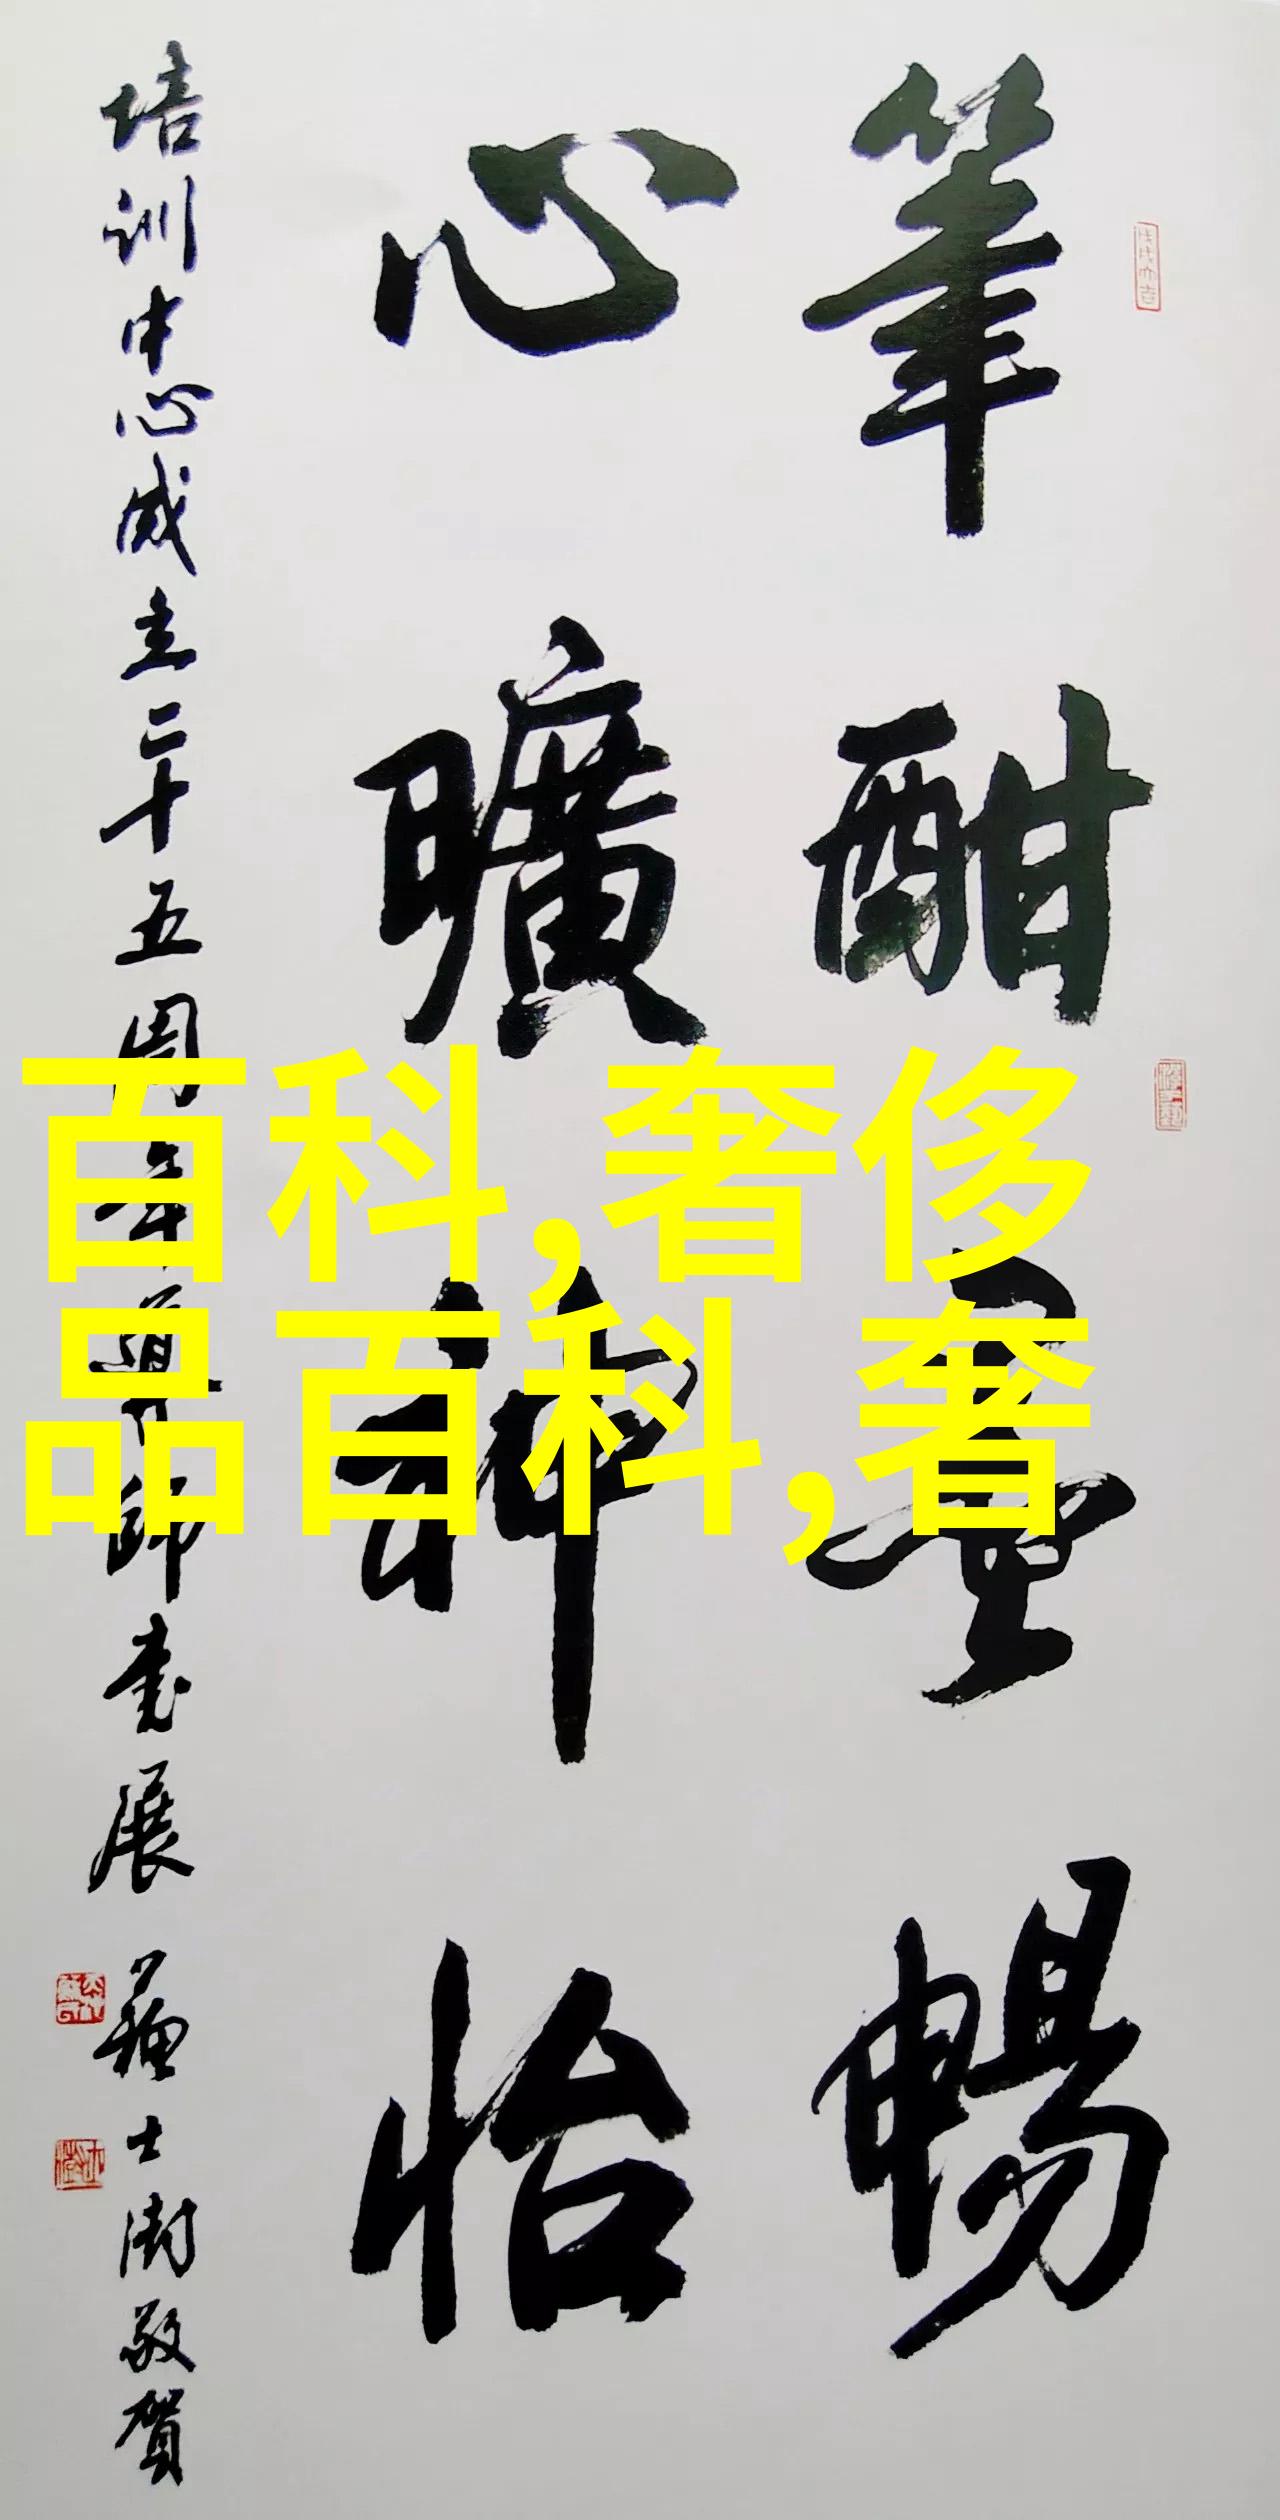 筆酣墨暢
心曠神怡
培训中心成立二十五周年导師書展
敬賀
百科,奢侈
品百科,奢